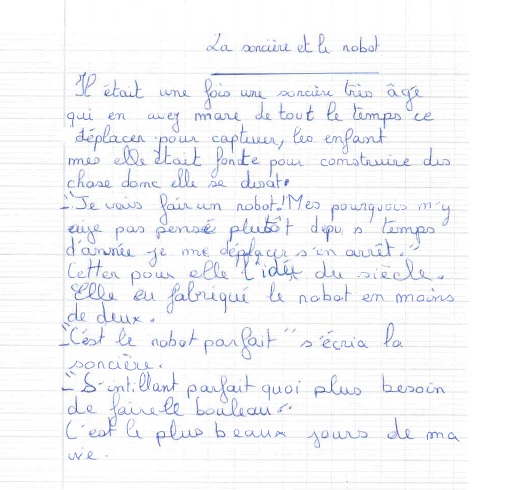 La sorcière et le robot
Il était une fois une sorcière très âge
qui en avez mare de tout le temps ce
déplacer pour capturer, les enfant
mes elle était forte pour construire des
chose donc elle se disat.
- "Je vais fair un robot! Mes pourquois m'y
eije pas pensé plutôt depu s temps
d'année je me déplacer s'en arrêt."
Cetter pour elle l'idée du siècle.
Elle eu fabriqué le robot en moins
de deux.
- "C'est le robot parfait" s'écria la
sorcière.
- "S'intillant parfait quoi plus besoin
de faire le bouleau."
C'est le plus beaux jours de ma
vie.